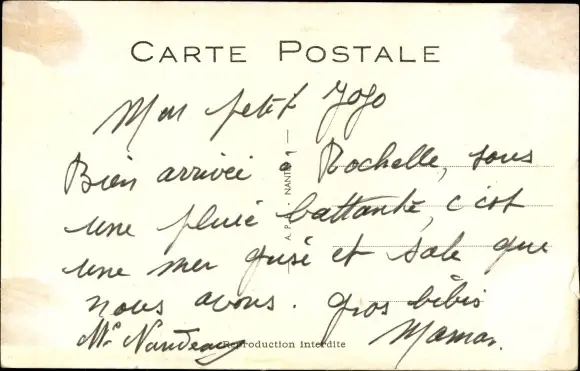 CARTE POSTALE
Mon petit Jojo
Bien arrivée a Rochelle, sous
une pluie battante, c'est
une mer grise et sale que
nous avons. gros bibis
Maman.
A. P. A. - NANTES
Reproduction interdite